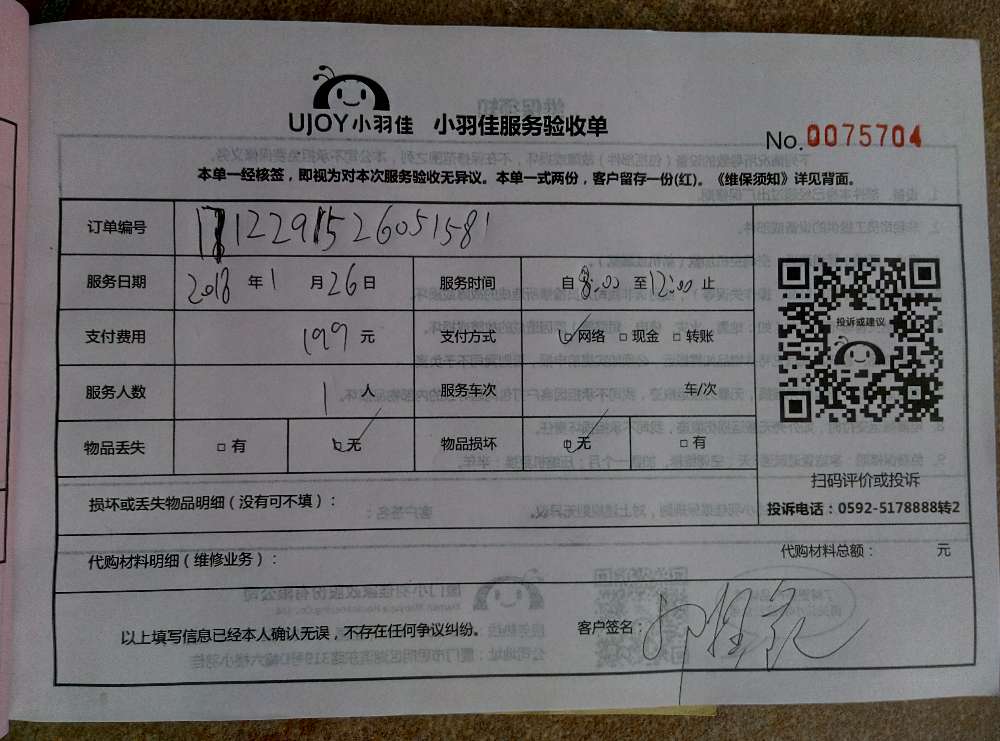 UJOY小羽佳 小羽佳服务验收单
No.0075704
本单一经核签，即视为对本次服务验收无异议。本单一式两份，客户留存一份(红)。《维保须知》详见背面。
订单编号 1712291526051581
服务日期 2018 年 1 月 26 日 服务时间 自 8:00 至 12:00 止
支付费用 199 元 支付方式 网络 现金 转账
服务人数 1 人 服务车次 车/次
物品丢失 有 无 物品损坏 无 有
投诉或建议
扫码评价或投诉
投诉电话：0592-5178888转2
损坏或丢失物品明细（没有可不填）：
代购材料明细（维修业务）： 代购材料总额： 元
以上填写信息已经本人确认无误，不存在任何争议纠纷。 客户签名：